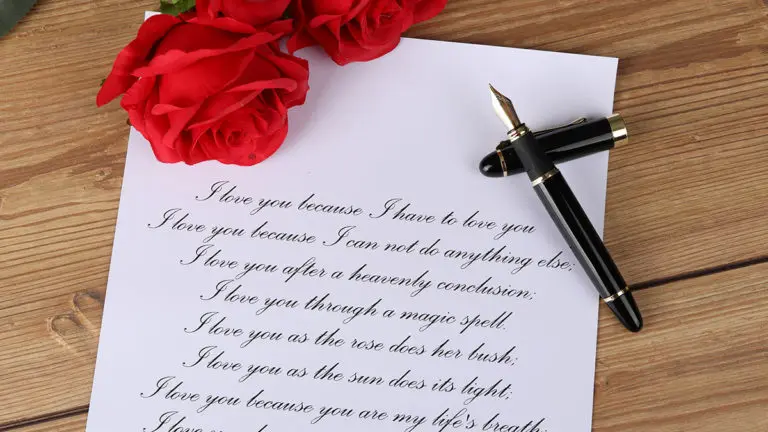 I love you because I have to love you
I love you because I can not do anything else;
I love you after a heavenly conclusion;
I love you through a magic spell.
I love you as the rose does her bush;
I love you as the sun does its light;
I love you because you are my life's breath;
I love you